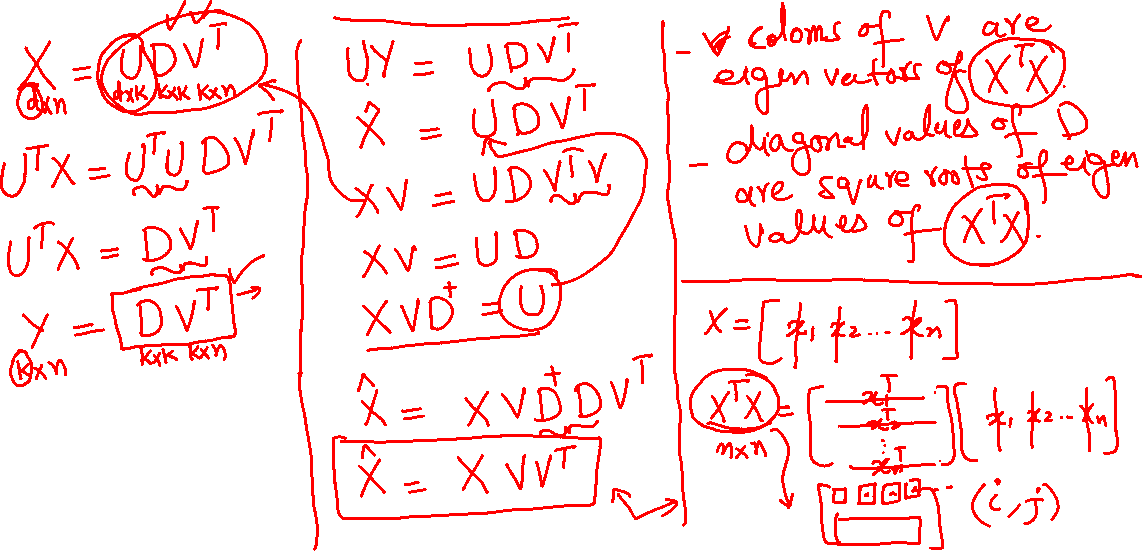 X = U D Vᵀ
d×n d×k k×k k×n
UᵀX = UᵀU D Vᵀ
UᵀX = D Vᵀ
Y = D Vᵀ
k×n k×k k×n
UY = U D Vᵀ
X̂ = U D Vᵀ
XV = U D VᵀV
XV = U D
XVD⁺ = U
X̂ = X V D⁺ D Vᵀ
X̂ = X V Vᵀ
- coloms of V are
eigen vectors of XᵀX
- diagonal values of D
are squre roots of eigen
values of XᵀX.
X = [x₁ x₂ ... xₙ]
XᵀX = [x₁ᵀ x₂ᵀ ⋮ xₙᵀ] [x₁ x₂ ... xₙ]
n×n
(i,j)